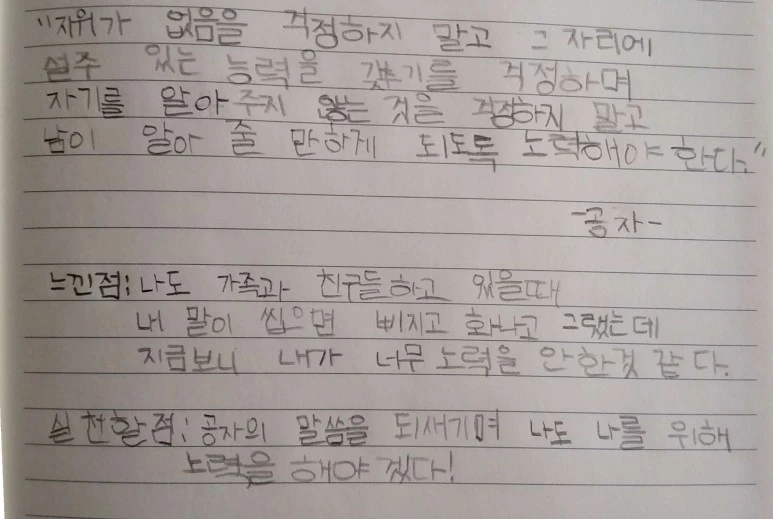 "자위가 없음을 걱정하지 말고 그 자리에
설주 있는 능력을 갖기를 걱정하며
자기를 알아주지 않는 것을 걱정하지 말고
남이 알아 줄 만하게 되도록 노력해야 한다."
-공자-
느낀점: 나도 가족과 친구들하고 있을때
내 말이 씹으면 삐지고 화나고 그랬는데
지금보니 내가 너무 노력을 안한것 같다.
실천할점: 공자의 말씀을 되새기며 나도 나를 위해
노력을 해야 겠다!